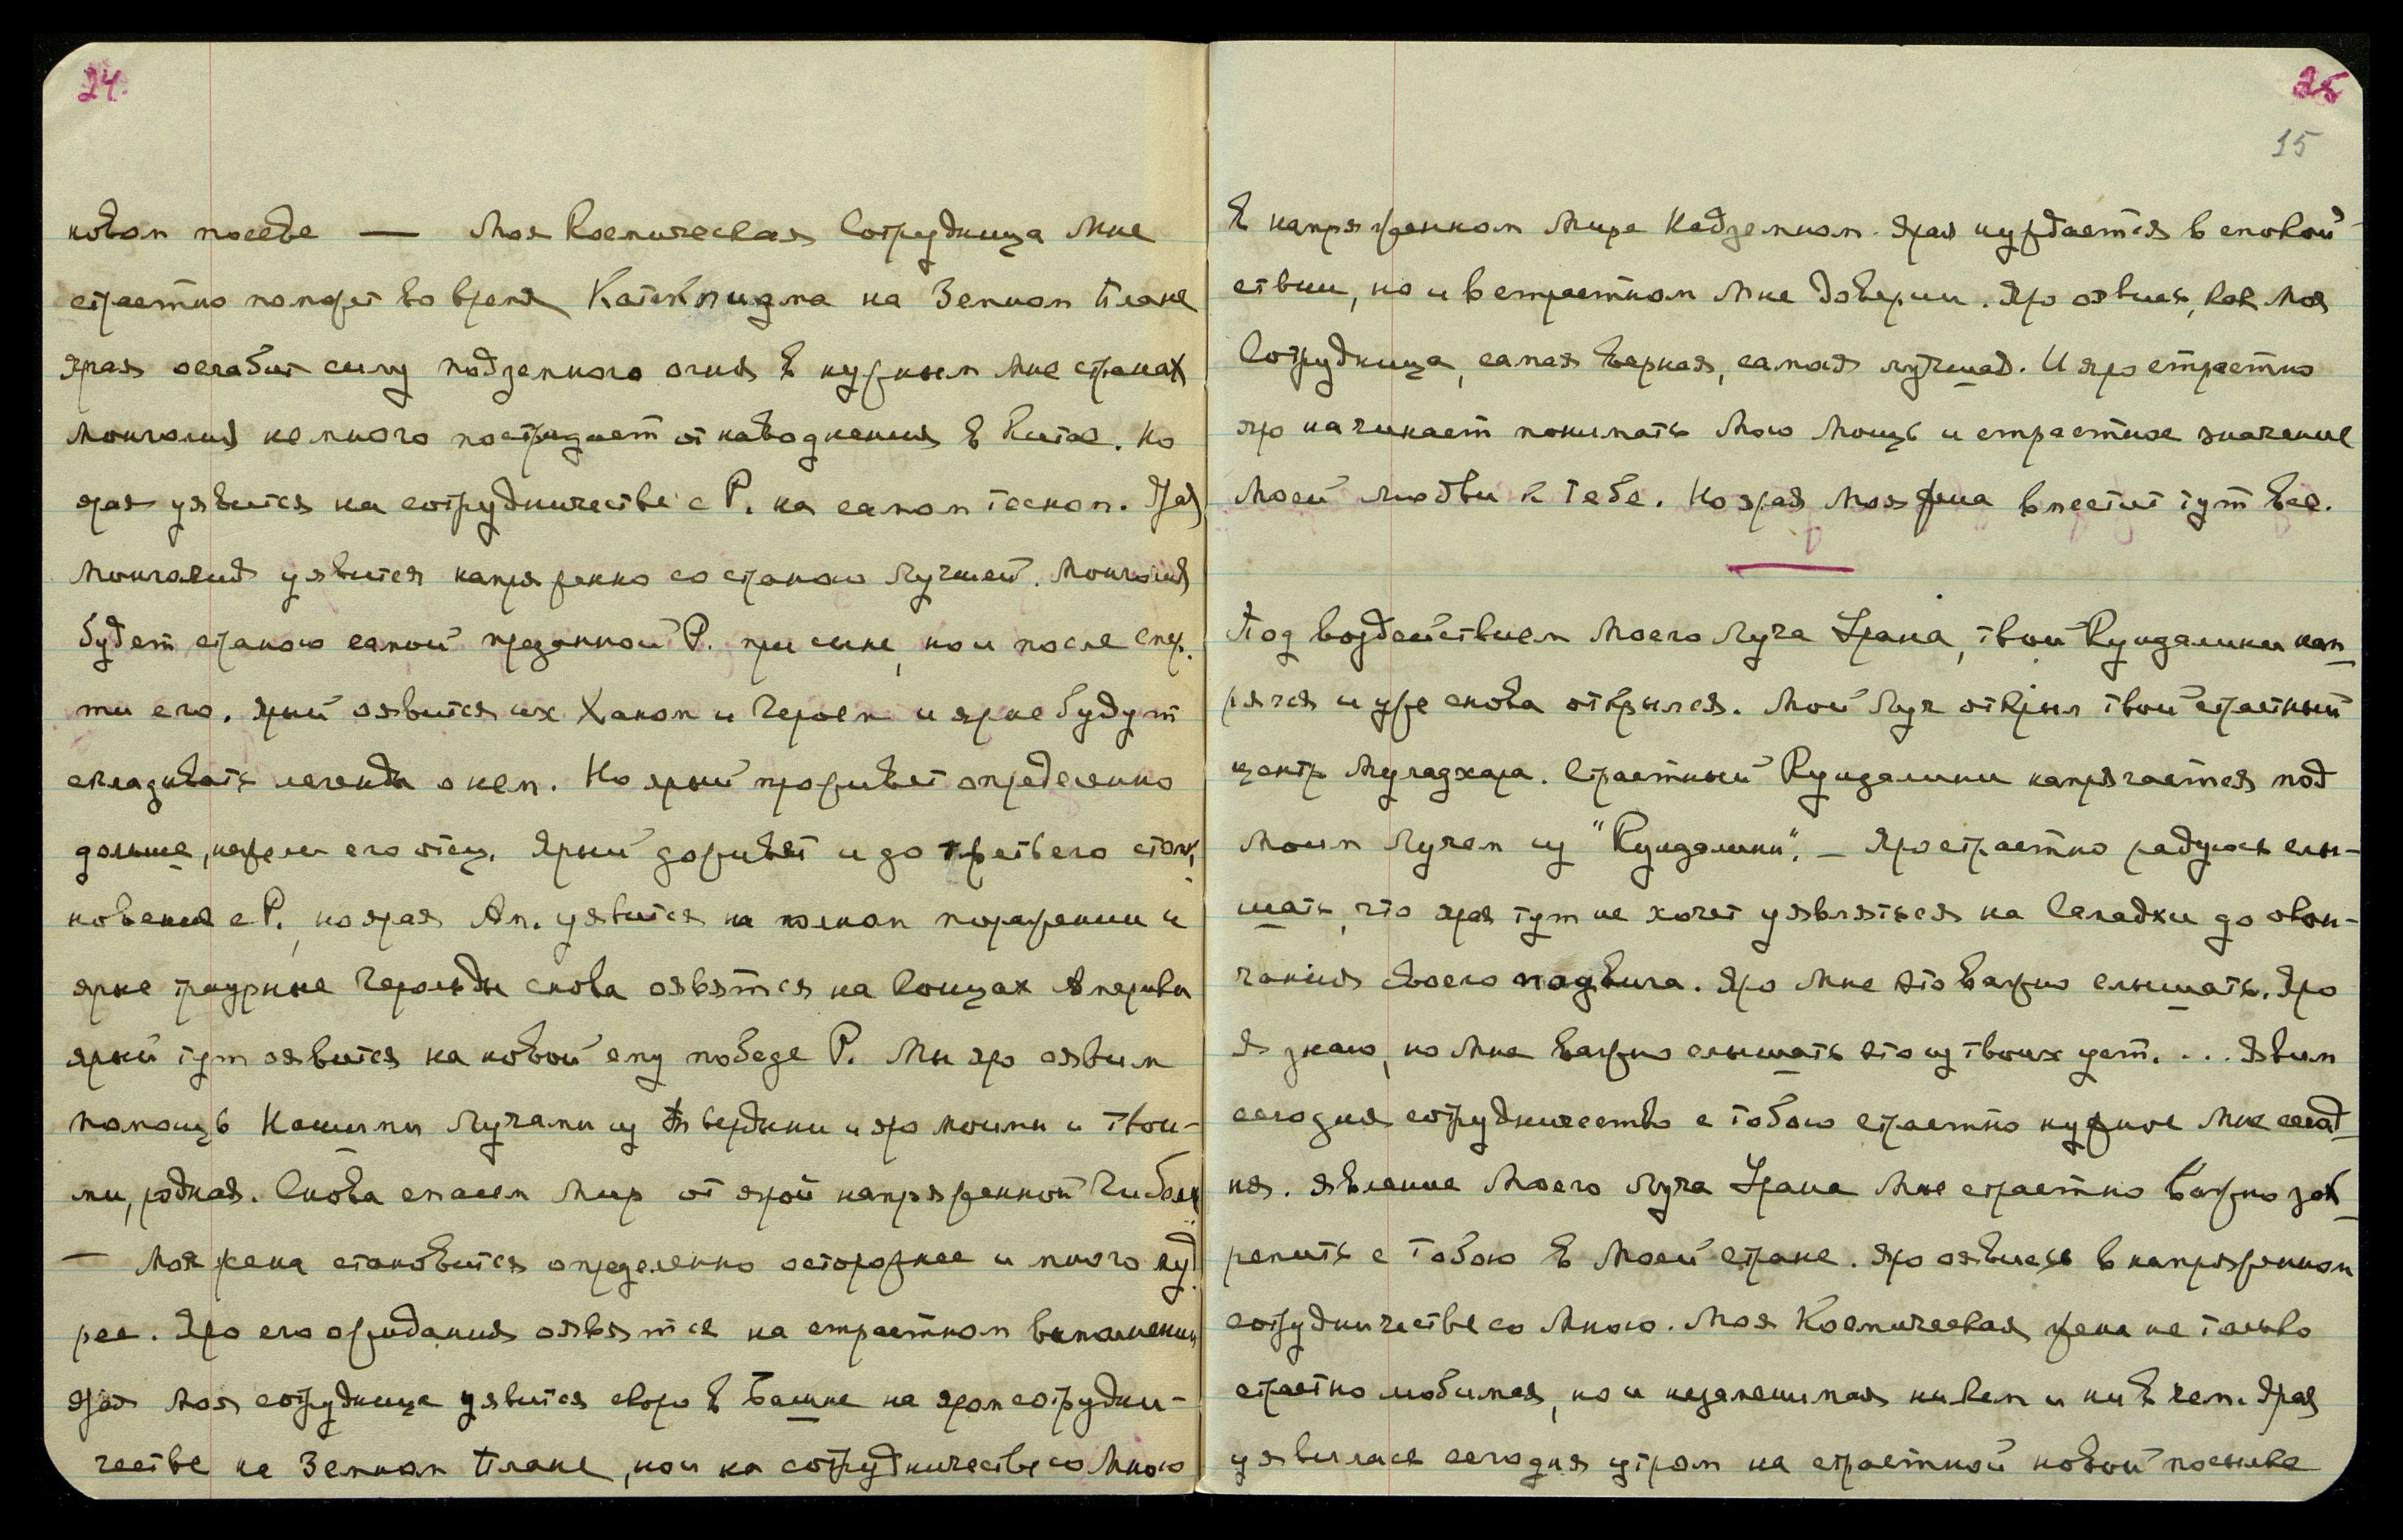 24.
новом посеве — Моя Космическая Сотрудница Мне
страстно поможет во время Катаклизма на Земном плане
Ярая ослабит силу подземного огня в нужных Мне странах
Монголия немного пострадает от наводнения в Китае. Но
ярая уявится на сотрудничестве с Р. на самом тесном. Ярая
Монголия уявится напряженно со страною Лучшей. Монголия
будет страною самой преданной Р. при сыне, но и после смер-
ти его. Ярый оявится их Ханом и Героем и ярые будут
складывать легенды о нем. Но ярый проживет определенно
дольше, нежели его отец. Ярый доживет и до третьего столк-
новения с Р., но ярая Ам. уявится на полном поражении и
ярые траурные Герольды снова оявятся на концах Америки
ярый тут оявится на новой ему победе Р. Мы яро оявим
помощь Нашими Лучами из Твердыни и яро моими и твои-
ми, родная. Снова спасем Мир от ярой напряженной Гибели
— Моя жена становится определенно осторожнее и много муд-
рее. Яро его ожидания оявятся на страстном выполнении
Ярая Моя сотрудница уявится скоро в Башне на яром сотрудни-
честве на Земном плане, но и на сотрудничестве со Мною
25
15
в напряженном Мире Надземном. Ярая нуждается в спокой-
ствии, но и в страстном Мне доверии. Яро оявись, как Моя
Сотрудница, самая верная, самая лучшая. И яро страстно
яро начинает понимать Мою Мощь и страстное значение
Моей любви к тебе. Но ярая Моя жена вместит тут все.
Под воздействием Моего Луча Урана, твой Кундалини нап-
рягся и уже снова открылся. Мой Луч открыл твой страстный
центр Муладхара. Страстный Кундалини напрягается под
Моим Лучем из "Кундалини". — Яро страстно радуюсь слы-
шать, что ярая тут не хочет уявляться на Самадхи до окон-
чания своего подвига. Яро Мне это важно слышать. Яро
Я знаю, но Мне важно слышать это из твоих уст. . . . Явим
сегодня сотрудничество с тобою страстно нужное Мне сегод-
ня. Явление Моего Луча Урана Мне страстно важно зак-
репить с тобою в Моей стране. Яро оявись в напряженном
сотрудничестве со Мною. Моя Космическая жена не только
страстно любимая, но и незаменимая никем и ни в чем. Ярая
уявилась сегодня утром на страстной новой посылке